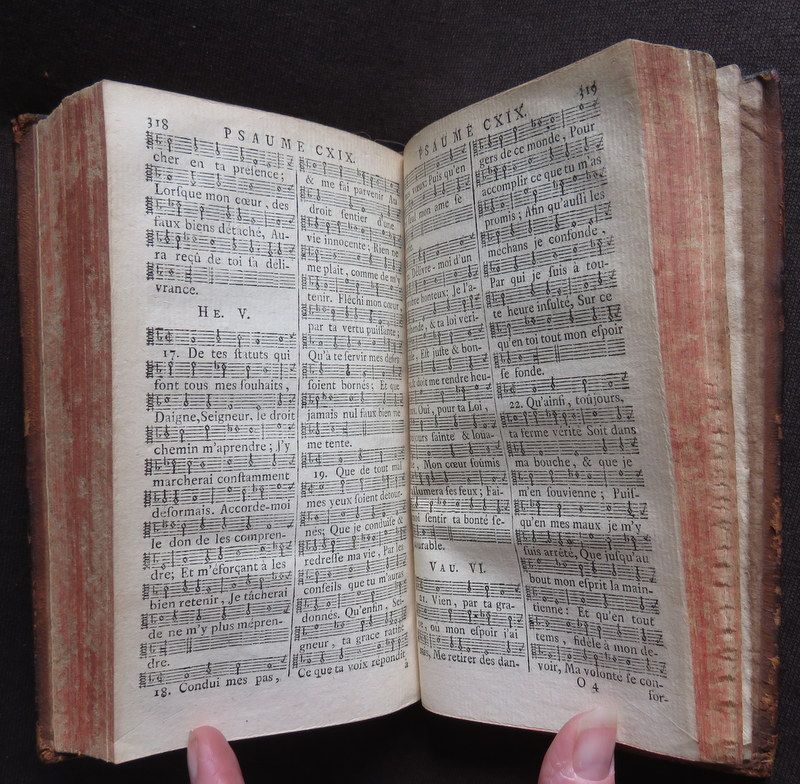 318
PSAUME CXIX.
cher en ta preſence;
Lorſque mon cœur, des
faux biens détaché, Au-
ra reçû de toi ſa déli-
vrance.
HE. V.
17. De tes ſtatuts qui
ſont tous mes ſouhaits,
Daigne, Seigneur, le droit
chemin m'aprendre; J'y
marcherai conſtamment
deſormais. Accorde-moi
le don de les compren-
dre; Et m'éforçant à les
bien retenir, Je tâcherai
de ne m'y plus mépren-
dre.
18. Condui mes pas,
& me fai parvenir Au
droit ſentier d'une
vie innocente; Rien ne
me plait, comme de m'y
tenir. Fléchi mon cœur,
par ta vertu puiſſante;
Qu'à te ſervir mes deſirs
ſoient bornés; Et que
jamais nul faux bien ne
me tente.
19. Que de tout mal
mes yeux ſoient détour-
nés; Que je conduiſe &
redreſſe ma vie, Par les
conſeils que tu m'auras
donnés. Qu'enfin, Sei-
gneur, ta grace ratifie
Ce que ta voix répondit
à
319
PSAUME CXIX.
vœux: Puis qu'en
mon ame ſe
Délivre-moi d'un
honteux; Je l'a-
& ta loi veri-
Eſt juſte & bon-
doit me rendre heu-
Oui, pour ta Loi,
ſainte & loua-
Mon cœur ſoumis
ſes feux; Fai-
ſentir ta bonté ſe-
VAU. VI.
21. Vien, par ta gra-
ou mon eſpoir j'ai
Me retirer des dan-
gers de ce monde, Pour
accomplir ce que tu m'as
promis; Afin qu'auſſi les
méchans je confonde,
Par qui je ſuis à tou-
te heure inſulté, Sur ce
qu'en toi tout mon eſpoir
ſe fonde.
22. Qu'ainſi, toûjours,
ta ferme vérité Soit dans
ma bouche, & que je
m'en ſouvienne; Puiſ-
qu'en mes maux je m'y
ſuis arrêté, Que juſqu'au
bout mon eſprit la main-
tienne: Et qu'en tout
tems, fidèle à mon de-
voir, Ma volonté ſe con-
O 4
for-